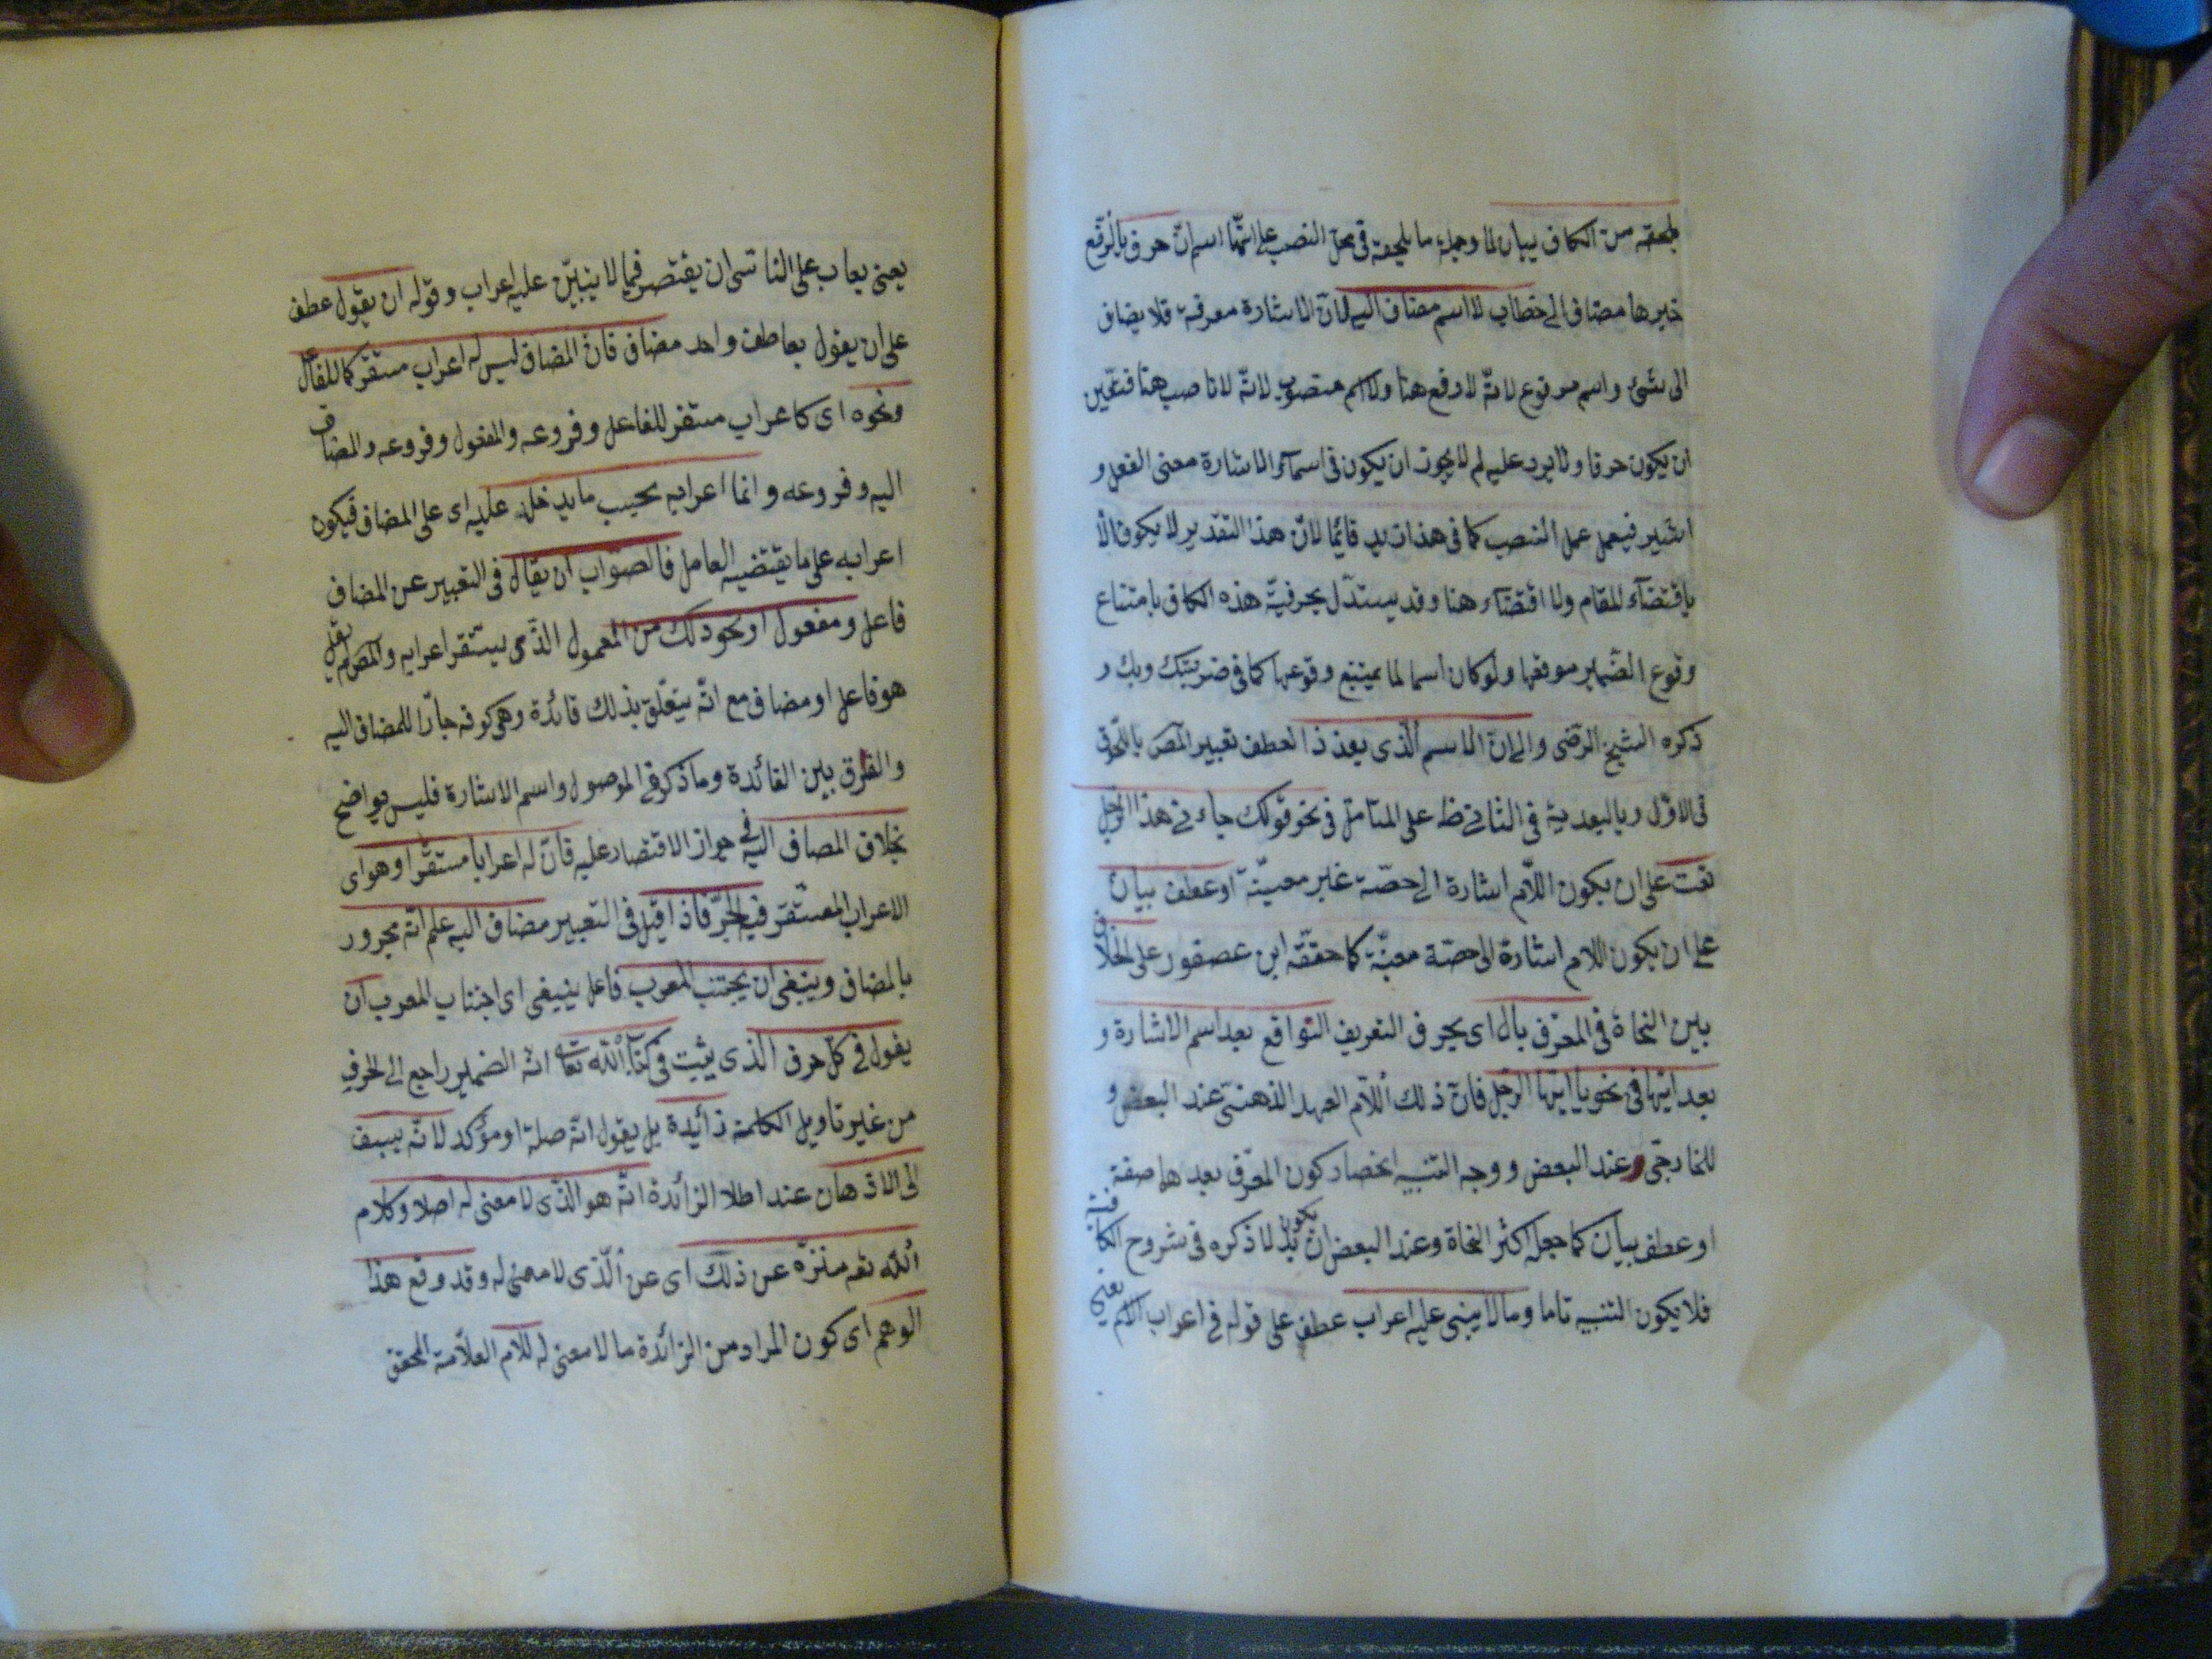 يلحقه من الكاف بيان لما وجملة ما يلحقه في محل النصب على انها اسم ان حرف بالرفع
خبرها مضاف الى خطاب لا اسم مضاف اليه لان الاشارة معرفة فلا يضاف
الى شئ واسم مرفوع لانه لا رفع هنا ولا اسم منصوب لانه لا ناصب هنا فتعين
ان يكون حرفا ولا يرد عليه لم لا يجوز ان يكون في اسماء الاشارة معنى الفعل و
اشير فيعمل عمل النصب كما في هذا زيد قائما لان هذا التقدير لا يكون الا
باقتضاء المقام ولا اقتضاء هنا وقد يستدل بحرفية هذه الكاف بامتناع
وقوع الضمير موقعها ولو كان اسما لما يمتنع وقوعها كما في ضربتك وبك و
ذكره الشيخ الرضى والى ان الاسم الذى بعد ذا لعطف تعبير المص باللحوق
فى الاول وبالبعدية فى الثانى ظ على المتامل فى نحو قولك جاءنى هذا الرجل
نعت على ان يكون اللام اشارة الى حصة غير معينة او عطف بيان
على ان يكون اللام اشارة الى حصة معينة كما حققه ابن عصفور على الخلاف
بين النحاة فى المعرف بال اى بحرف التعريف الواقع بعد اسم الاشارة و
بعد ايها فى نحو يا ايها الرجل فان ذلك اللام العهد الذهنى عند البعض و
للخارجى وعند البعض ووجه التنبيه انحصار كون المعرف بعدها صفة
او عطف بيان كما جعله اكثر النحاة وعند البعض ان يكون بدلا ذكره فى شروح الكافية
فلا يكون التنبيه تاما ومما لا ينبى عليه اعراب عطف على قوله فى اعراب الاسم يعنى
يعنى يعاب على الناشى ان يقتصر فيما لا ينبين عليه اعراب وقوله ان يقول عطف
على ان يقول بعاطف واحد مضاف فان المضاف ليس له اعراب مستقر كما للفاعل
ونحوه اى كاعراب مستقر للفاعل وفروعه والمفعول وفروعه والمضاف
اليه وفروعه وانما اعرابه بحسب ما يدخل عليه اى على المضاف فيكون
اعرابه على ما يقتضيه العامل فالصواب ان يقال فى التعبير عن المضاف
فاعل ومفعول او نحو ذلك من المعمول الذى يستقر اعرابه والمص لم يقل
هو فاعل او مضاف مع انه يتعلق بذلك فائدة وهى كونه جارا للمضاف اليه
والفرق بين الفائدة وما ذكر فى الموصول واسم الاشارة فليس بواضح
بخلاف المضاف اليه فى جواز الاقتصار عليه فان له اعرابا مستقرا وهو اى
الاعراب المستقر فيه الجر فاذا قيل فى التعبير مضاف اليه علم انه مجرور
بالمضاف وينبغى ان يجتنب المعرب فاعل ينبغى اى اجتناب المعرب ان
يقول فى كل حرف الذى يثبت فى كتاب الله تعالى انه الضمير راجع الى الحرف
من غير تاويل الكلمة زائدة بل يقول انه صلة او مؤكد لانه يسبق
الى الاذهان عند اطلا الزائدة انه هو الذى لا معنى له اصلا وكلام
الله تعه منزه عن ذلك اى عن الذى لا معنى له وقد وقع هذا
الوهم اى كون المراد من الزائدة ما لا معنى له للامام العلامة المحقق